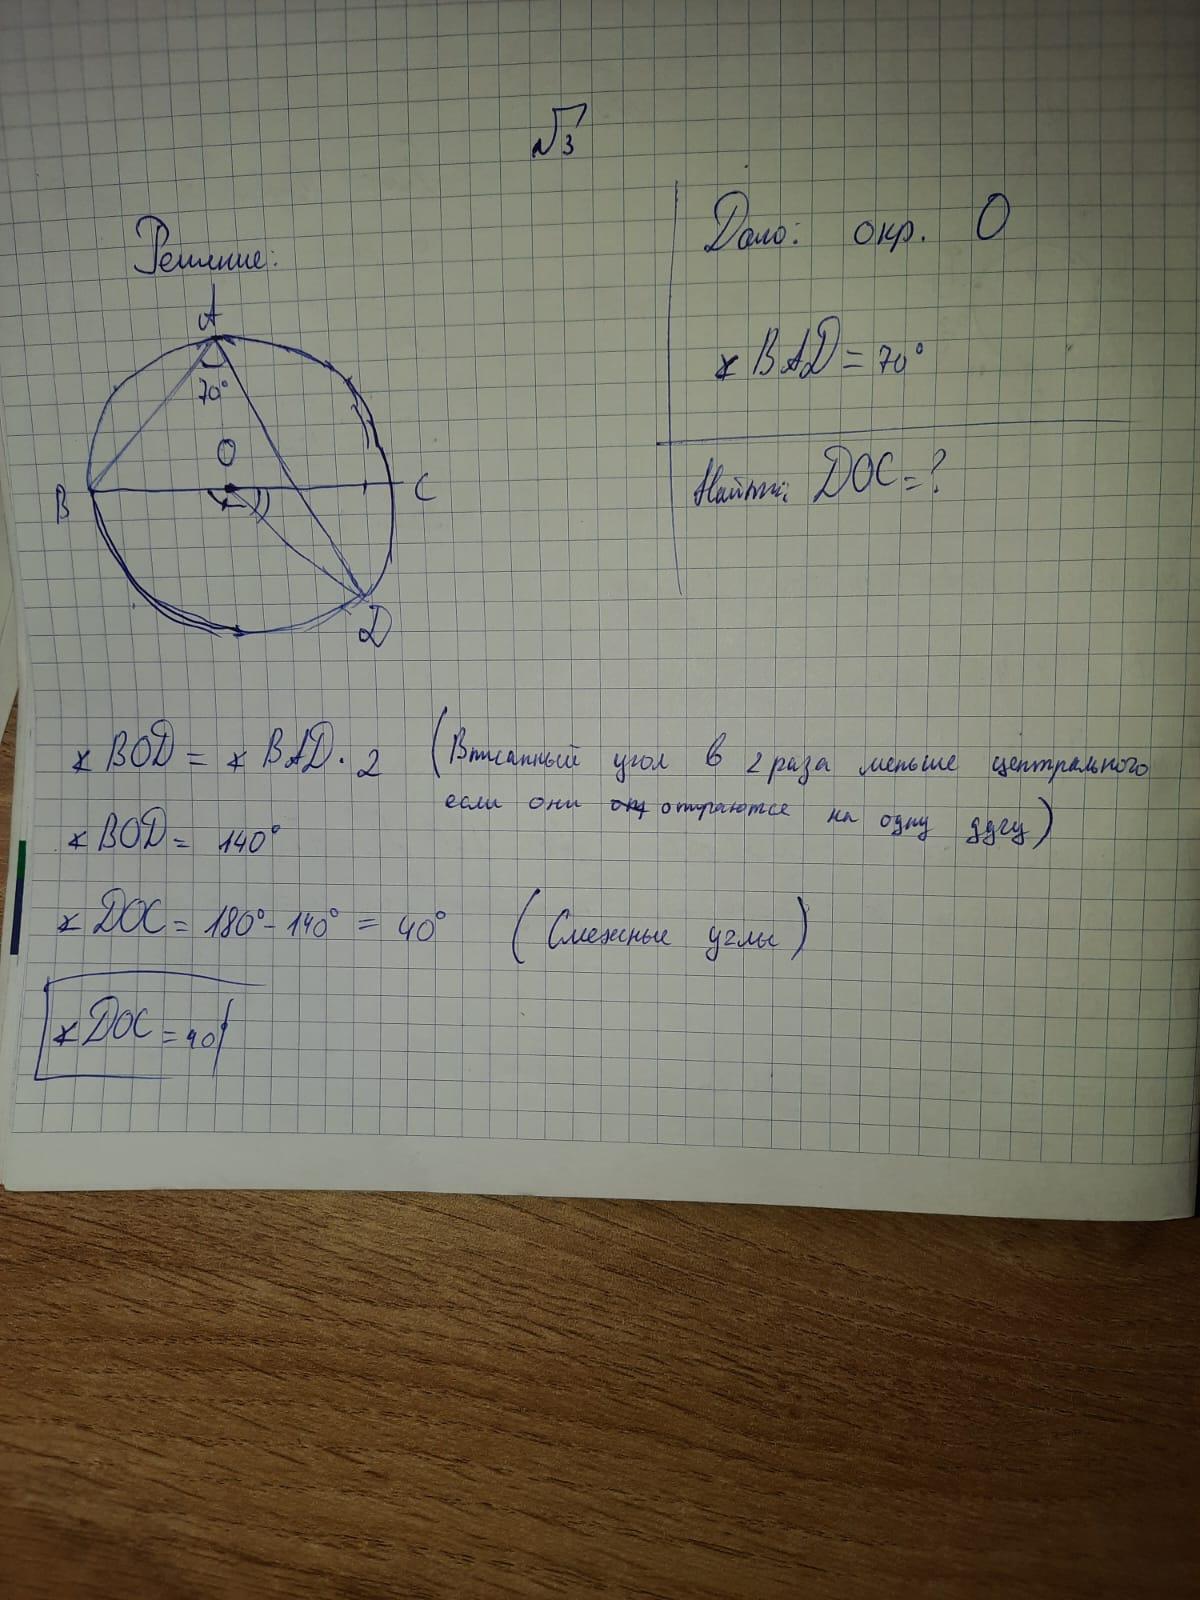 √3
Решение:
Дано: окр. O
A
70°
O
B
C
D
∡ BAD = 70°
Найти: DOC = ?
∡ BOD = ∡ BAD · 2 (Вписанный угол в 2 раза меньше центрального
если они опираются на одну дугу)
∡ BOD = 140°
∡ DOC = 180° - 140° = 40° (Смежные углы)
∡ DOC = 40°